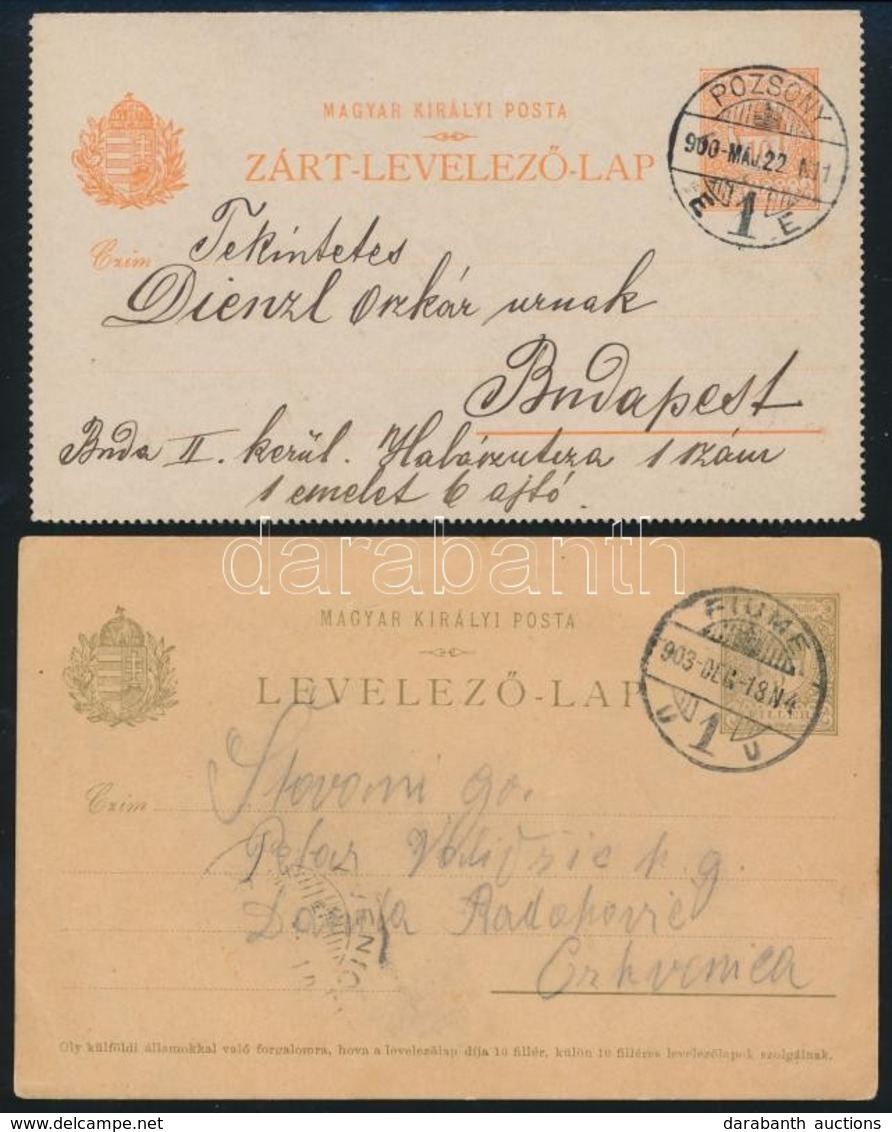 MAGYAR KIRÁLYI POSTA
ZÁRT-LEVELEZŐ-LAP
POZSONY
900-MÁJ.22
E 1 E
Czim
Tekintetes
Dienzl Oszkár urnak
Budapest
Buda II. kerül. Halászutcza 1 szám
1 emelet 6 ajtó.
darabanth
MAGYAR KIRÁLYI POSTA
LEVELEZŐ-LAP
FIUME
903-DEC.-18N4
U 1 U
Czim
Petar
Crkvenica
Oly külföldi államokkal való forgalomra, hova a levelezőlap díja 10 fillér, külön 10 filléres levelezőlapok szolgálnak.
delcampe.net
darabanth auctions